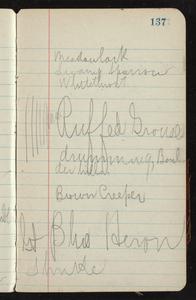 137
Meadowlark
Swamp Sparrow
Whitethroat
Ruffed Grouse
drumming, Boul
der
Brown Creeper
1st Blue Heron
Shrike